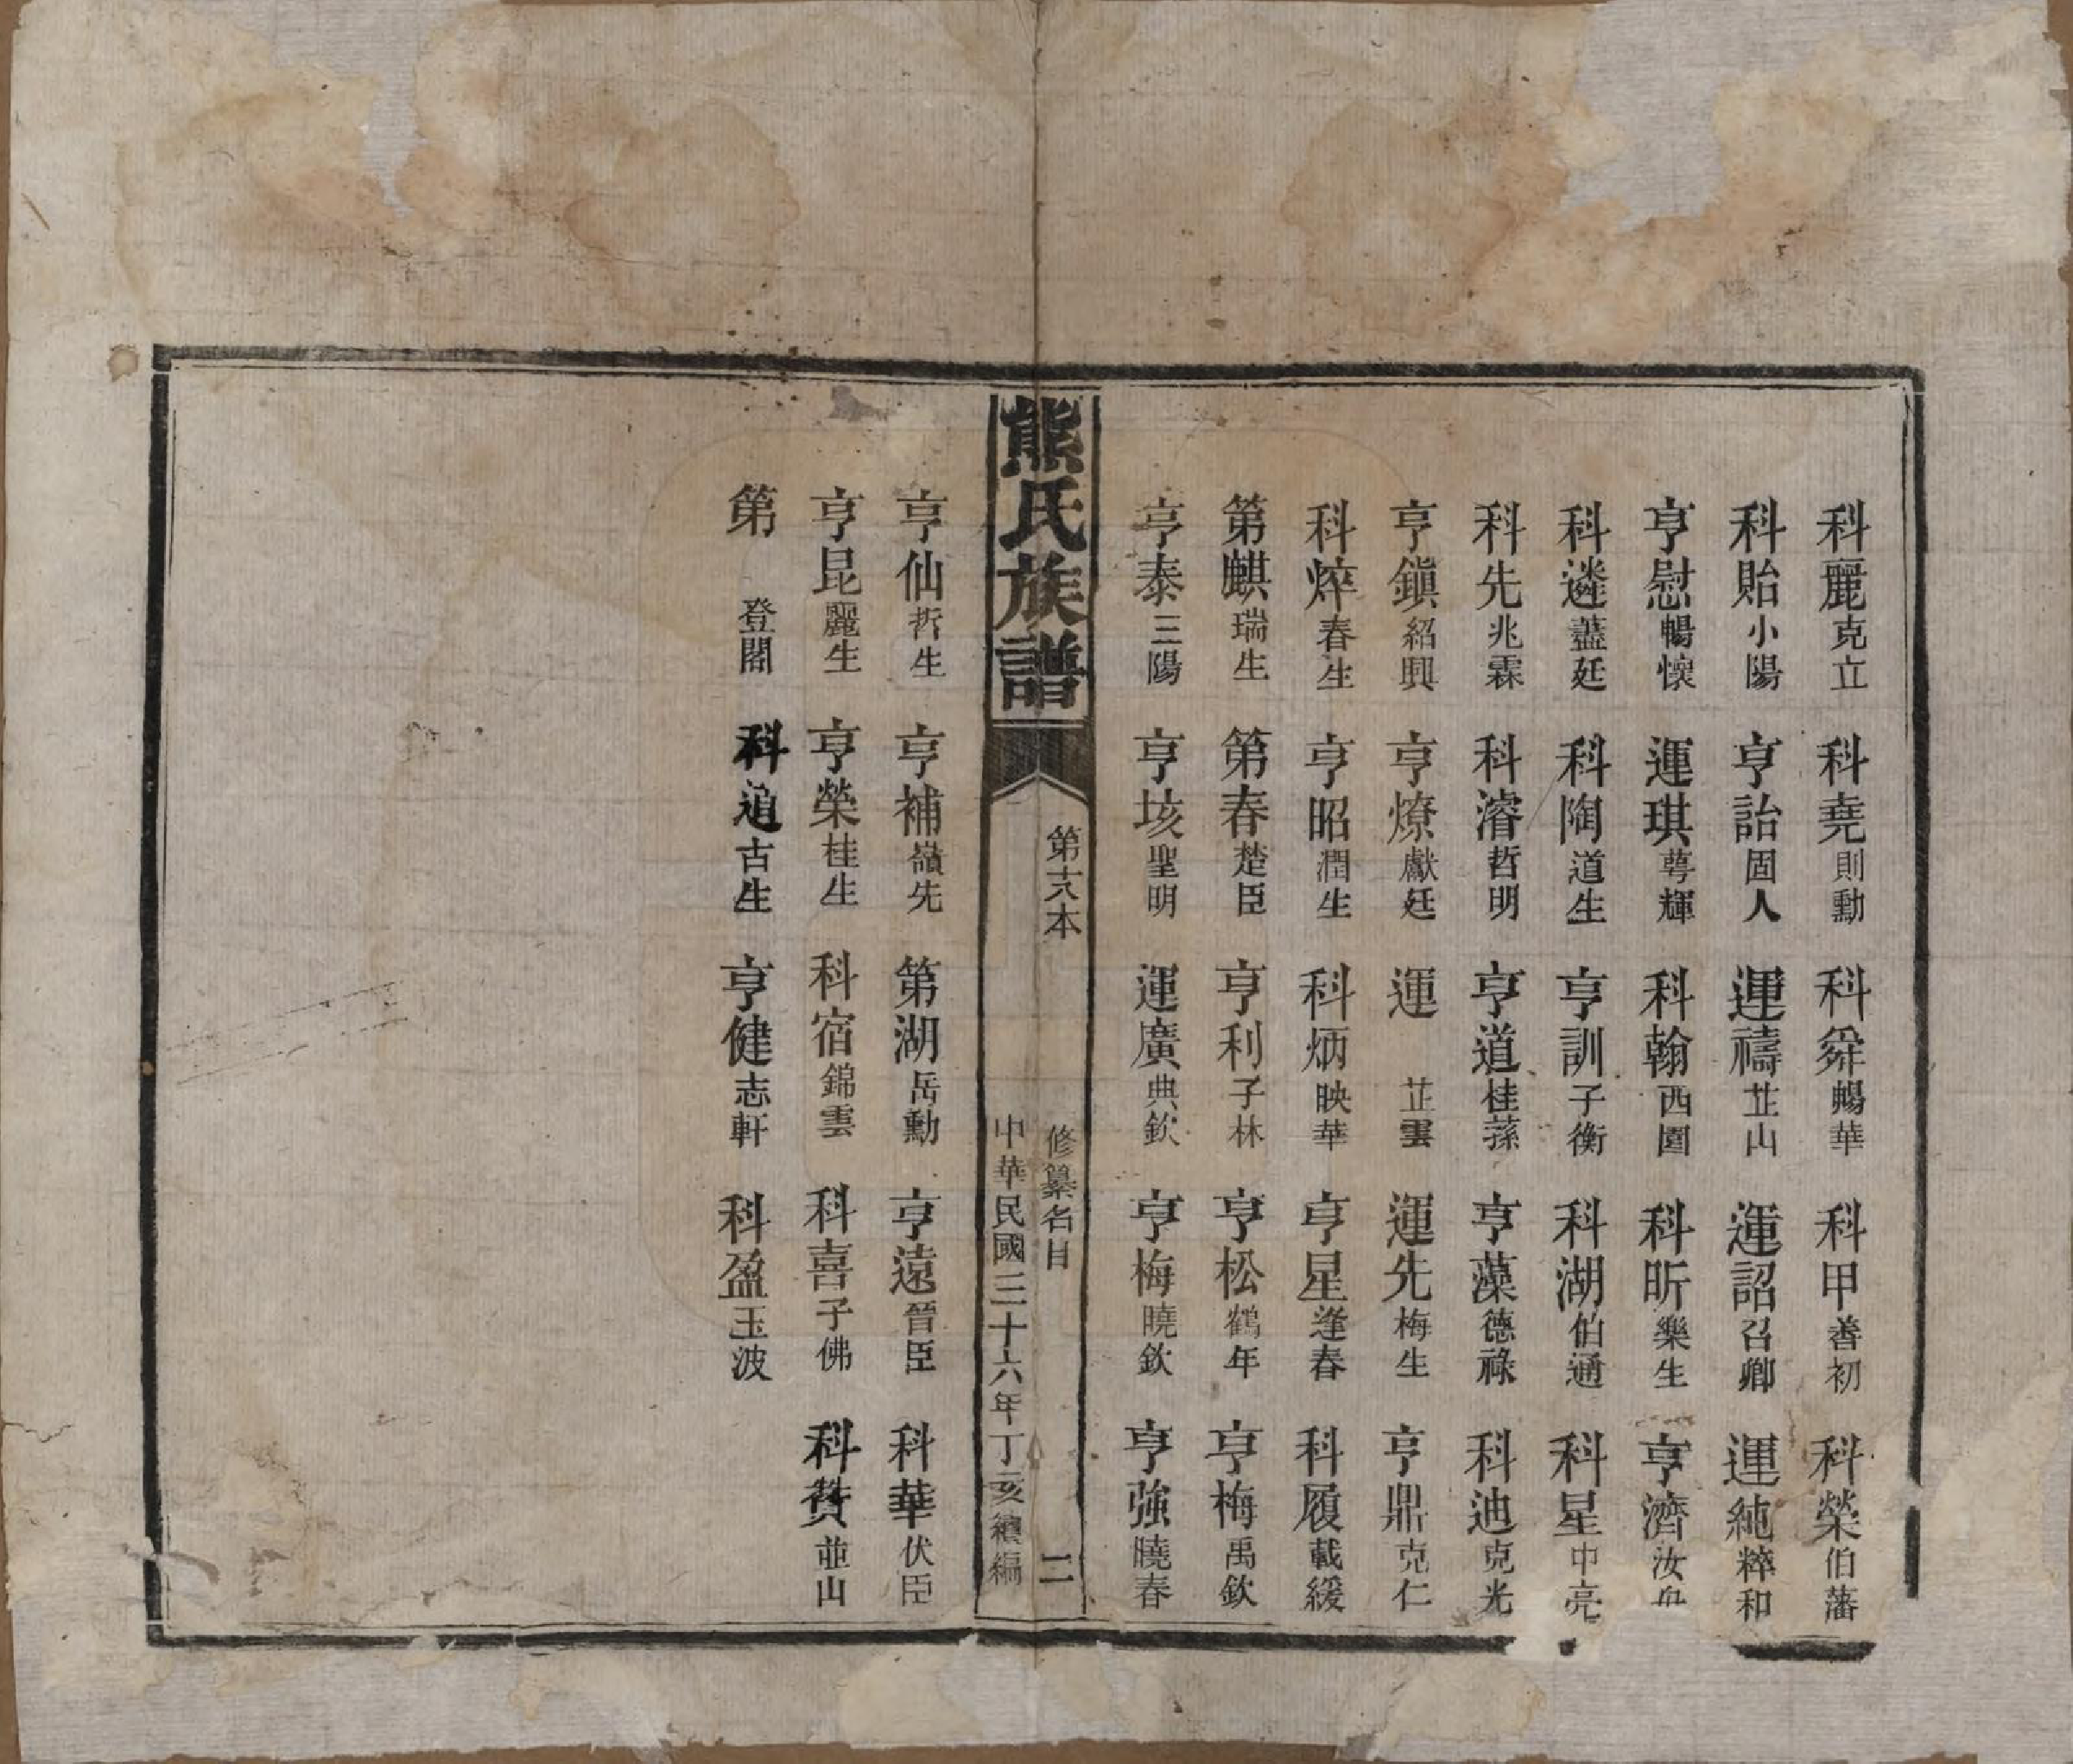 科麗克立 科堯則勳 科舜賜華 科甲善初 科榮伯藩
科貽小陽 亨詒固人 運禱芷山 運詔召卿 運純粹和
亨慰暢懷 運琪萼輝 科翰西園 科昕樂生 亨濟汝舟
科遴藎廷 科陶道生 亨訓子衡 科湖伯通 科星中亮
科先兆霖 科濬哲明 亨道桂蓀 亨藻德祿 科迪克光
亨鎭紹興 亨燎獻廷 運 芷雲 運先梅生 亨鼎克仁
科焠春生 亨昭潤生 科炳映華 亨星逢春 科履載綏
第麒瑞生 第春楚臣 亨利子林 亨松鶴年 亨梅禹欽
亨泰三陽 亨垓聖明 運廣典欽 亨梅曉欽 亨強曉春
熊氏族譜
第六本 修纂名目 二
中華民國三十六年丁亥續編
亨仙哲生 亨補嶺先 第湖岳勳 亨遠晉臣 科華伏臣
亨昆麗生 亨榮桂生 科宿錦雲 科喜子佛 科贊並山
第 登閣 科逌古生 亨健志軒 科盈玉波